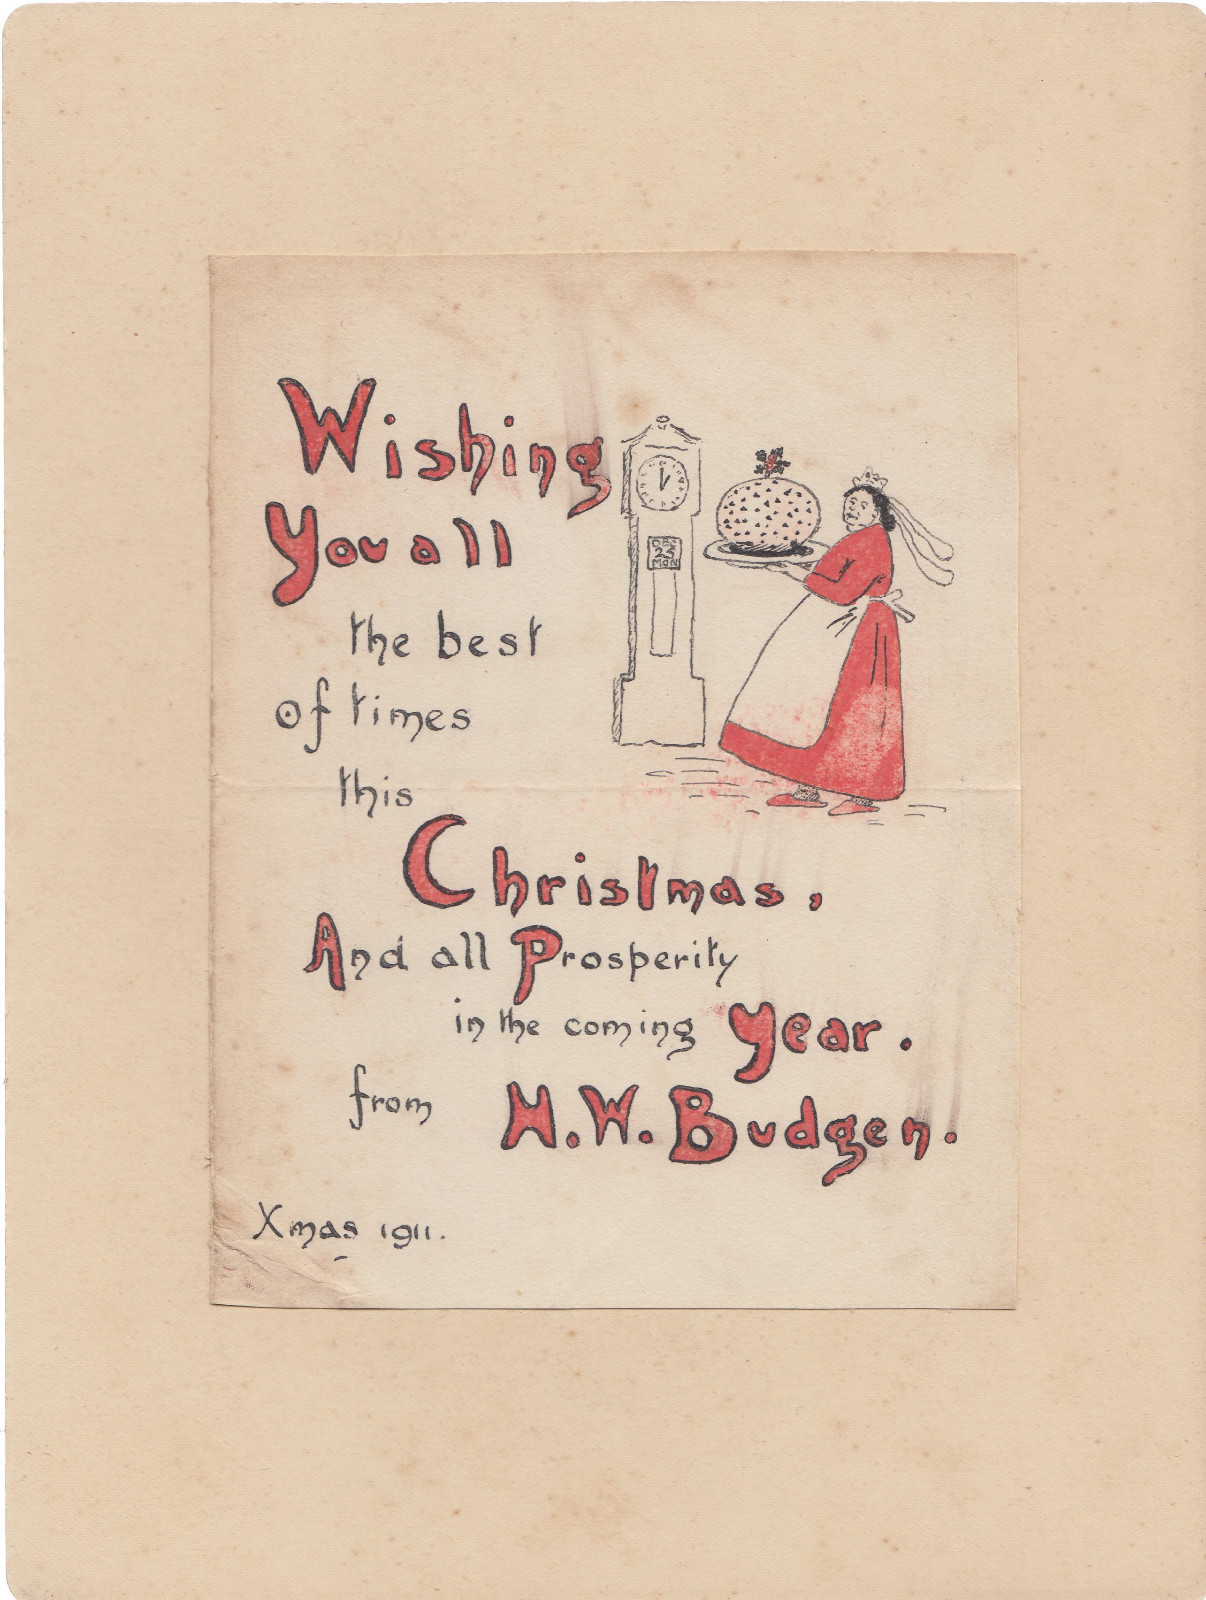 Wishing
You all
the best
of times
this
Christmas,
And all Prosperity
in the coming Year.
from H.W. Budgen.
Xmas 1911.
DEC
25
MON